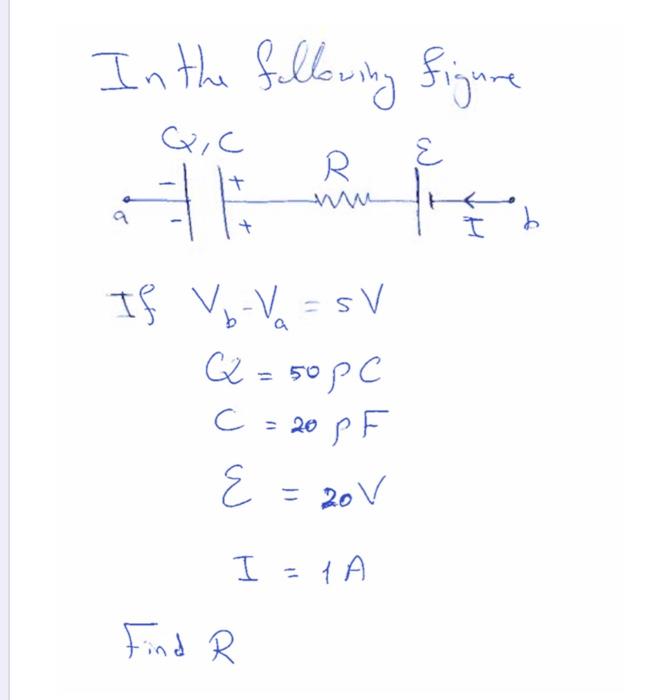 In the following figure
Q, C
R
ε
- +
a
- +
I
b
If V_b - V_a = 5V
Q = 50 pC
C = 20 pF
ε = 20V
I = 1A
Find R